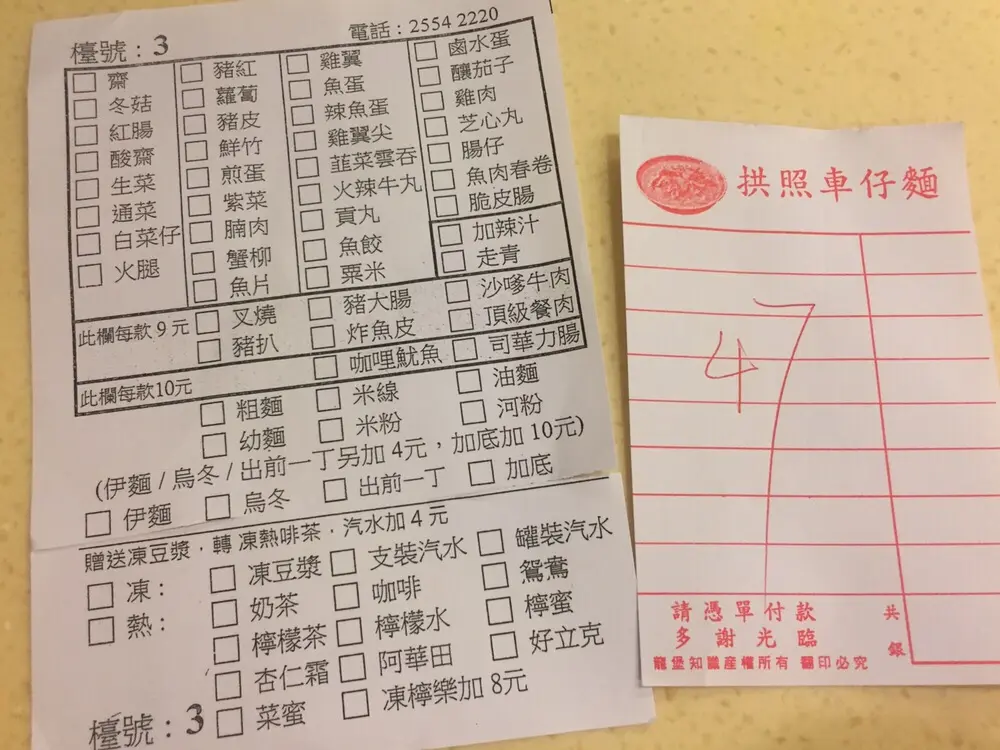 檯號：3 電話：2554 2220
□ 齋 □ 豬紅 □ 雞翼 □ 鹵水蛋
□ 冬菇 □ 蘿蔔 □ 魚蛋 □ 釀茄子
□ 紅腸 □ 豬皮 □ 辣魚蛋 □ 雞肉
□ 酸齋 □ 鮮竹 □ 雞翼尖 □ 芝心丸
□ 生菜 □ 煎蛋 □ 韮菜雲吞 □ 腸仔
□ 通菜 □ 紫菜 □ 火辣牛丸 □ 魚肉春卷
□ 白菜仔 □ 腩肉 □ 貢丸 □ 脆皮腸
□ 火腿 □ 蟹柳 □ 魚餃 □ 加辣汁
□ 魚片 □ 粟米 □ 走青
此欄每款 9 元 □ 叉燒 □ 豬大腸 □ 沙嗲牛肉
□ 豬扒 □ 炸魚皮 □ 頂級餐肉
此欄每款10元 □ 咖哩魷魚 □ 司華力腸
□ 粗麵 □ 米線 □ 油麵
□ 幼麵 □ 米粉 □ 河粉
(伊麵 / 烏冬 / 出前一丁另加 4元，加底加 10元)
□ 伊麵 □ 烏冬 □ 出前一丁 □ 加底
贈送凍豆漿，轉 凍熱啡茶，汽水加 4 元
□ 凍： □ 凍豆漿 □ 支裝汽水 □ 罐裝汽水
□ 熱： □ 奶茶 □ 咖啡 □ 鴛鴦
□ 檸檬茶 □ 檸檬水 □ 檸蜜
□ 杏仁霜 □ 阿華田 □ 好立克
檯號：3 □ 菜蜜 □ 凍檸樂加 8元
拱照車仔麵
47
請憑單付款 共
多謝光臨 銀
龍堡知識產權所有 翻印必究